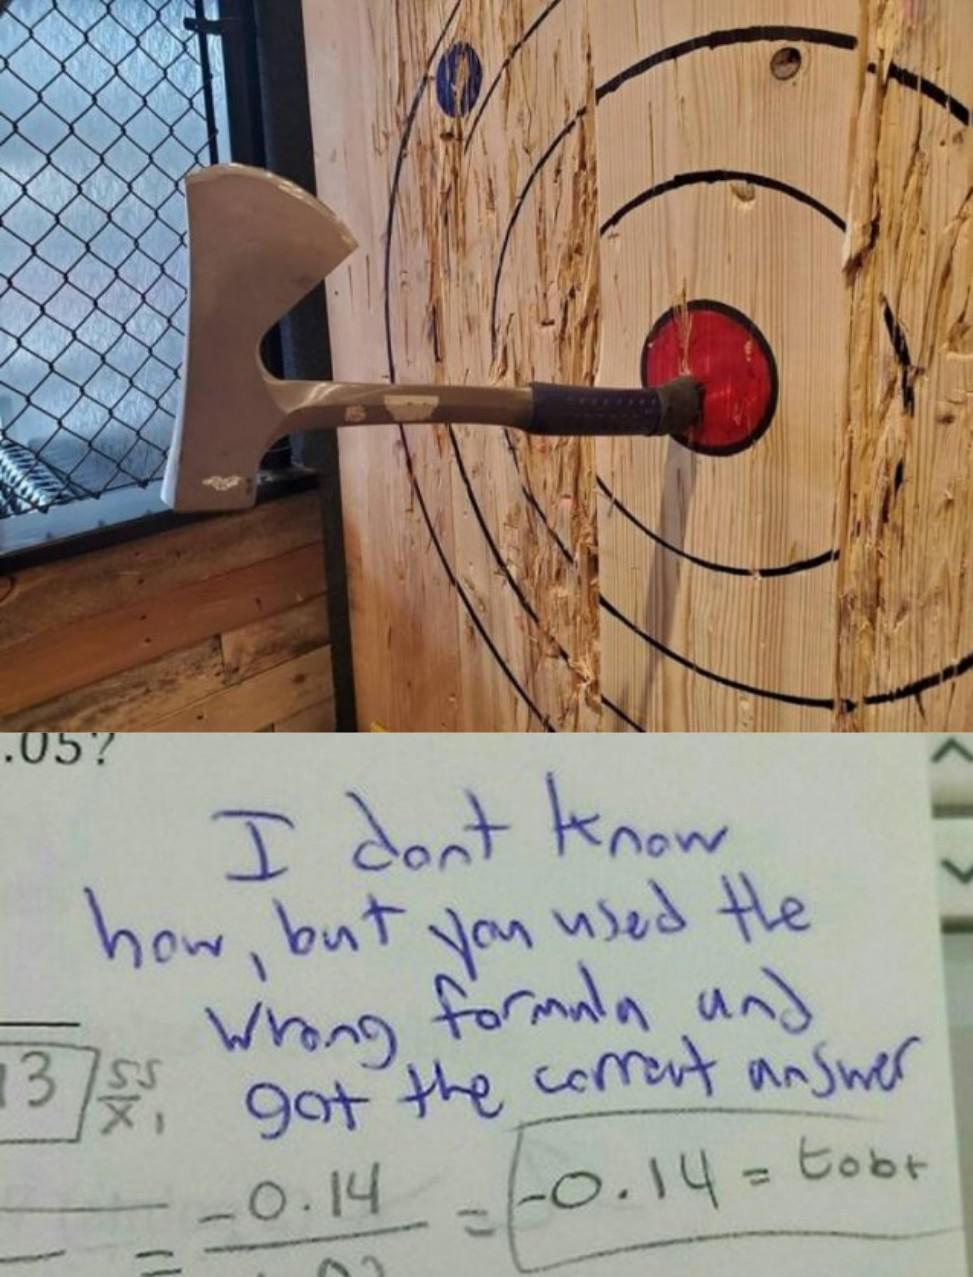 .05?
I dont know
how, but you used the
wrong formula and
got the correct answer
13 SS
X1
-0.14 = -0.14 = tobt